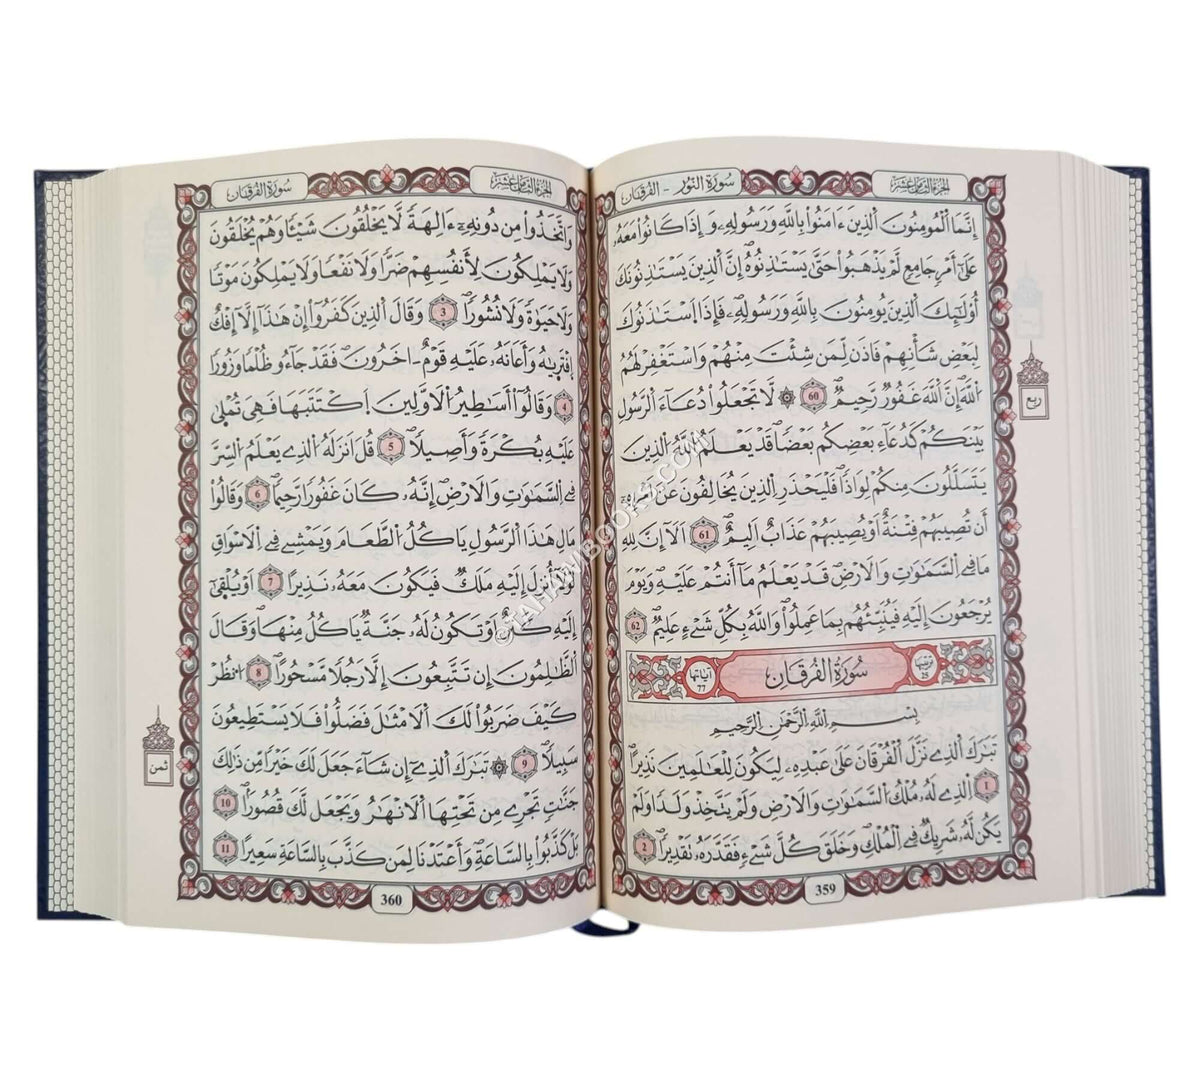 الجزء الثامن عشر
سورة النور - الفرقان
إِنَّمَا اَ۬لْمُومِنُونَ اَ۬لذِينَ ءَامَنُواْ بِاللَّهِ وَرَسُولِهِۦ وَإِذَا كَانُواْ مَعَهُۥ
عَلَىٰٓ أَمْرٖ جَامِعٖ لَّمْ يَذْهَبُواْ حَتَّىٰ يَسْتَٰذِنُوهُۖ إِنَّ اَ۬لذِينَ يَسْتَٰذِنُونَكَ
أُوْلَٰٓئِكَ اَ۬لذِينَ يُومِنُونَ بِاللَّهِ وَرَسُولِهِۦۖ فَإِذَا اَ۪سْتَٰذَنُوكَ
لِبَعْضِ شَأْنِهِمْ فَاذَن لِّمَن شِئْتَ مِنْهُمْ وَاسْتَغْفِرْ لَهُمُ
اُ۬للَّهَۖ إِنَّ اَ۬للَّهَ غَفُورٞ رَّحِيمٞۖ 60 ۞ لَّا تَجْعَلُواْ دُعَآءَ اَ۬لرَّسُولِ
بَيْنَكُمْ كَدُعَآءِ بَعْضِكُم بَعْضاٗۖ قَدْ يَعْلَمُ اُ۬للَّهُ اُ۬لذِينَ
يَتَسَلَّلُونَ مِنكُمْ لِوَاذاٗۖ فَلْيَحْذَرِ اِ۬لذِينَ يُخَالِفُونَ عَنْ أَمْرِهِۦٓ
أَن تُصِيبَهُمْ فِتْنَةٌ أَوْ يُصِيبَهُمْ عَذَابٌ اَلِيمٌۖ 61 اَلَآ إِنَّ لِلهِ
مَا فِے اِ۬لسَّمَٰوَٰتِ وَالَارْضِۖ قَدْ يَعْلَمُ مَآ أَنتُمْ عَلَيْهِ وَيَوْمَ
يُرْجَعُونَ إِلَيْهِ فَيُنَبِّئُهُم بِمَا عَمِلُواْۖ وَاللَّهُ بِكُلِّ شَےْءٍ عَلِيمٞۖ 62
ترتيبها 25 سُورَةُ الفُرْقَانِ آياتها 77
بِسْمِ اِ۬للَّهِ اِ۬لرَّحْمَٰنِ اِ۬لرَّحِيمِ
تَبَٰرَكَ اَ۬لذِے نَزَّلَ اَ۬لْفُرْقَانَ عَلَىٰ عَبْدِهِۦ لِيَكُونَ لِلْعَٰلَمِينَ نَذِيراًۖ
1 اِ۬لذِے لَهُۥ مُلْكُ اُ۬لسَّمَٰوَٰتِ وَالَارْضِ وَلَمْ يَتَّخِذْ وَلَداٗ وَلَمْ
يَكُن لَّهُۥ شَرِيكٞ فِے اِ۬لْمُلْكِۖ وَخَلَقَ كُلَّ شَےْءٖ فَقَدَّرَهُۥ تَقْدِيراٗۖ 2
359
ربع
الجزء الثامن عشر
سورة الفرقان
وَاتَّخَذُواْ مِن دُونِهِۦٓ ءَالِهَةٗ لَّا يَخْلُقُونَ شَيْـٔاٗ وَهُمْ يُخْلَقُونَ
وَلَا يَمْلِكُونَ لِأَنفُسِهِمْ ضَرّاٗ وَلَا نَفْعاٗ وَلَا يَمْلِكُونَ مَوْتاٗ
وَلَا حَيَوٰةٗ وَلَا نُشُوراٗۖ 3 وَقَالَ اَ۬لذِينَ كَفَرُوٓاْ إِنْ هَٰذَآ إِلَّآ إِفْكٌ
اِ۪فْتَر۪يٰهُ وَأَعَانَهُۥ عَلَيْهِ قَوْمٌ اٰخَرُونَۖ فَقَدْ جَآءُو ظُلْماٗ وَزُوراٗ
4 وَقَالُوٓاْ أَسَٰطِيرُ اُ۬لَاوَّلِينَ اَ۪كْتَتَبَهَا فَهِيَ تُمْل۪يٰ
عَلَيْهِ بُكْرَةٗ وَأَصِيلاٗۖ 5 قُلَ اَنزَلَهُ اُ۬لذِے يَعْلَمُ اُ۬لسِّرَّ
فِے اِ۬لسَّمَٰوَٰتِ وَالَارْضِۖ إِنَّهُۥ كَانَ غَفُوراٗ رَّحِيماٗۖ 6 وَقَالُواْ
مَالِ هَٰذَا اَ۬لرَّسُولِ يَاكُلُ اُ۬لطَّعَامَ وَيَمْشِے فِے اِ۬لَاسْوَاقِ
لَوْلَآ أُنزِلَ إِلَيْهِ مَلَكٞ فَيَكُونَ مَعَهُۥ نَذِيراً 7 اَوْ يُلْق۪ىٰٓ
إِلَيْهِ كَنزٌ اَوْ تَكُونُ لَهُۥ جَنَّةٞ يَاكُلُ مِنْهَاۖ وَقَالَ
اَ۬لظَّٰلِمُونَ إِن تَتَّبِعُونَ إِلَّا رَجُلاٗ مَّسْحُوراًۖ 8 اُ۟نظُرْ
كَيْفَ ضَرَبُواْ لَكَ اَ۬لَامْثَٰلَ فَضَلُّواْ فَلَا يَسْتَطِيعُونَ
سَبِيلاٗۖ 9 ۞ تَبَٰرَكَ اَ۬لذِےٓ إِن شَآءَ جَعَلَ لَكَ خَيْراٗ مِّن ذَٰلِكَ
جَنَّٰتٖ تَجْرِے مِن تَحْتِهَا اَ۬لَانْهَٰرُ وَيَجْعَل لَّكَ قُصُوراٗۖ 10
بَلْ كَذَّبُواْ بِالسَّاعَةِۖ وَأَعْتَدْنَا لِمَن كَذَّبَ بِالسَّاعَةِ سَعِيراًۖ 11
360
ثمن
©TAHANIBOOKS.COM